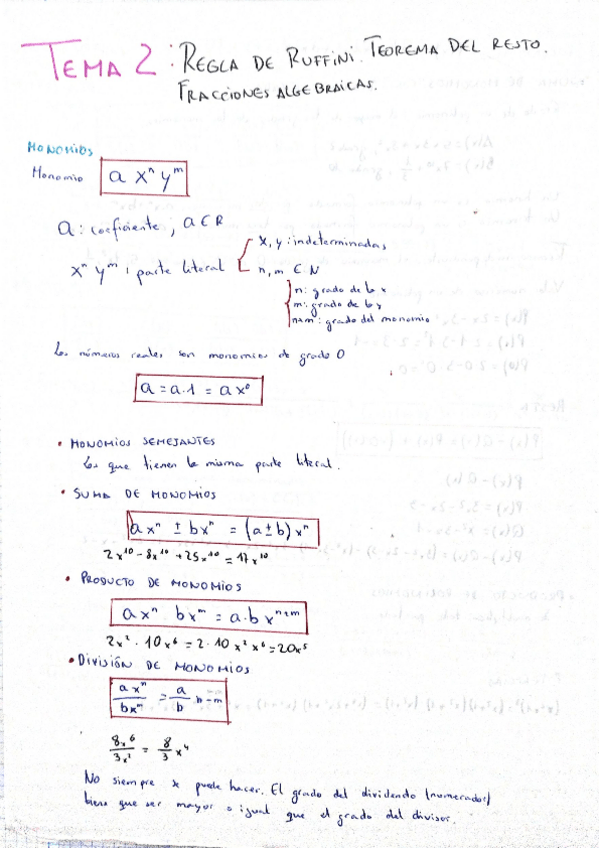 TEMA 2: REGLA DE RUFFINI. TEOREMA DEL RESTO.
FRACCIONES ALGEBRAICAS.
MONOMIOS
Monomio a xⁿ yᵐ
a: coeficiente, a ∈ R
xⁿ yᵐ: parte literal
x, y: indeterminadas
n, m ∈ N
n: grado de la x
m: grado de la y
n+m: grado del monomio
Los números reales son monomios de grado 0
a = a·1 = ax⁰
• MONOMIOS SEMEJANTES
Los que tienen la misma parte literal.
• SUMA DE MONOMIOS
axⁿ ± bxⁿ = (a±b)xⁿ
2x¹⁰ - 8x¹⁰ + 25x¹⁰ = 17x¹⁰
• PRODUCTO DE MONOMIOS
axⁿ · bxᵐ = a·b xⁿ⁺ᵐ
2x² · 10x⁶ = 2·10 x² x⁶ = 20x⁵
• DIVISIÓN DE MONOMIOS
axⁿ/bxᵐ = a/b n-m
8x⁶/3x² = 8/3 x⁴
No siempre se puede hacer. El grado del dividendo (numerador)
tiene que ser mayor o igual que el grado del divisor.